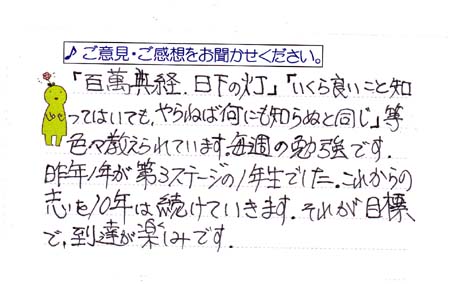 ♪ ご意見・ご感想をお聞かせください。
「百萬典経、日下の灯」「いくら良いこと知
ってはいても、やらねば何にも知らぬと同じ」等
色々教えられています。毎週の勉強です。
昨年1年が第3ステージの1年生でした。これからの
志を10年は続けていきます。それが目標
で、到達が楽しみです。